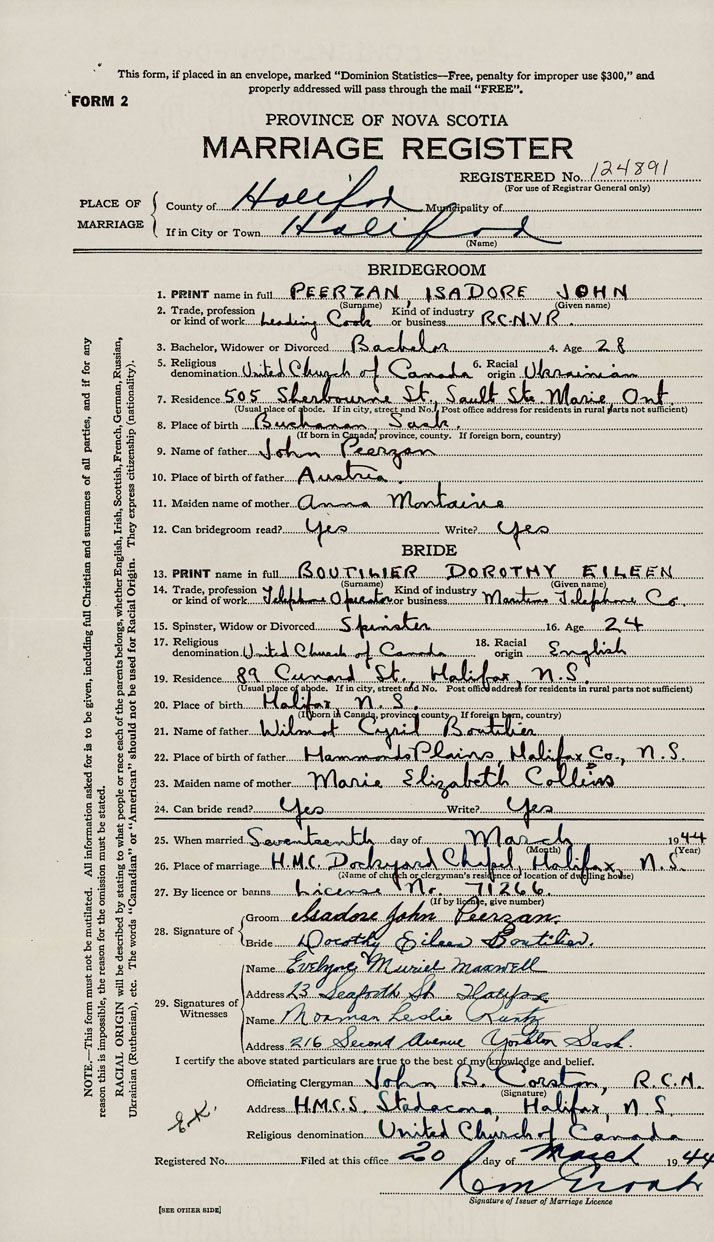 This form, if placed in an envelope, marked "Dominion Statistics—Free, penalty for improper use $300," and
properly addressed will pass through the mail "FREE".
FORM 2
PROVINCE OF NOVA SCOTIA
MARRIAGE REGISTER
REGISTERED No. 124891
(For use of Registrar General only)
PLACE OF MARRIAGE
County of Halifax Municipality of
If in City or Town Halifax
(Name)
BRIDEGROOM
1. PRINT name in full PEERZAN, ISADORE JOHN
(Surname) (Given name)
2. Trade, profession or kind of work Leading Cook Kind of industry or business R.C.N.V.R.
3. Bachelor, Widower or Divorced Bachelor 4. Age 28
5. Religious denomination United Church of Canada 6. Racial origin Ukrainian
7. Residence 505 Sherbourne St., Sault Ste. Marie, Ont.
(Usual place of abode. If in city, street and No. Post office address for residents in rural parts not sufficient)
8. Place of birth Buchanan, Sask.
(If born in Canada, province, county. If foreign born, country)
9. Name of father John Peerzan
10. Place of birth of father Austria
11. Maiden name of mother Anna Montaine
12. Can bridegroom read? Yes Write? Yes
BRIDE
13. PRINT name in full BOUTILIER DOROTHY EILEEN
(Surname) (Given name)
14. Trade, profession or kind of work Telephone Operator Kind of industry or business Maritime Telephone Co.
15. Spinster, Widow or Divorced Spinster 16. Age 24
17. Religious denomination United Church of Canada 18. Racial origin English
19. Residence 89 Cunard St., Halifax, N.S.
(Usual place of abode. If in city, street and No. Post office address for residents in rural parts not sufficient)
20. Place of birth Halifax, N.S.
(If born in Canada, province county. If foreign born, country)
21. Name of father Wilmot Cyril Boutilier
22. Place of birth of father Hammonds Plains, Halifax Co., N.S.
23. Maiden name of mother Marie Elizabeth Collins
24. Can bride read? Yes Write? Yes
25. When married Seventeenth day of March 1944
(Month) (Year)
26. Place of marriage H.M.C. Dockyard Chapel, Halifax, N.S.
(Name of church or clergyman's residence or location of dwelling house)
27. By licence or banns License Nr. 71266
(If by license, give number)
28. Signature of
Groom Isadore John Peerzan.
Bride Dorothy Eileen Boutilier.
29. Signatures of Witnesses
Name Evelyne Muriel Maxwell
Address 23 Seaforth St Halifax
Name Norman Leslie
Address 216 Second Avenue Yorkton Sask.
I certify the above stated particulars are true to the best of my knowledge and belief.
Officiating Clergyman John B. Corston, R.C.N.
(Signature)
Address H.M.C.S. Stadacona, Halifax, N.S.
Religious denomination United Church of Canada
Registered No. Filed at this office 20 day of March 1944
Signature of Issuer of Marriage Licence
[SEE OTHER SIDE]
NOTE.—This form must not be mutilated. All information asked for is to be given, including full Christian and surnames of all parties, and if for any
reason this is impossible, the reason for the omission must be stated.
RACIAL ORIGIN will be described by stating to what people or race each of the parents belongs, whether English, Irish, Scottish, French, German, Russian,
Ukrainian (Ruthenian), etc. The words "Canadian" or "American" should not be used for Racial Origin. They express citizenship (nationality).